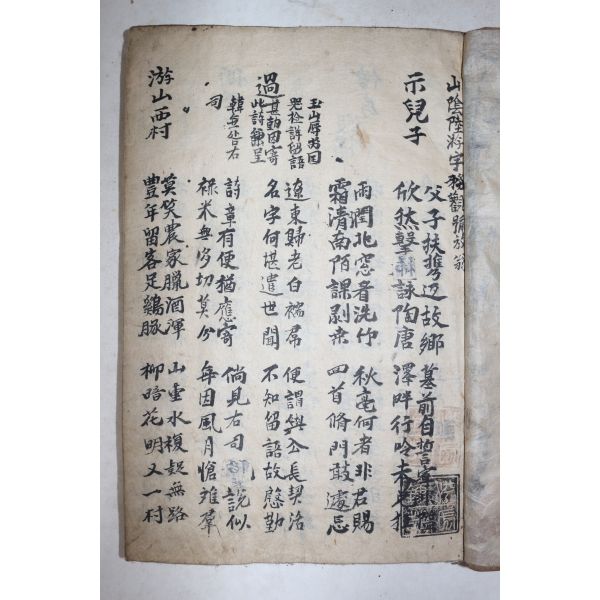 山陰陸游字務觀號放翁
示兒子
父子扶携返故鄉
欣然擊壤詠陶唐
墓前自誓
澤畔行吟未足
雨潤北窓看洗竹
霜清南陌課剝桑
秋毫何者非君賜
四首脩門敢遽忘
過
玉山
此詩 呈
遼東歸老白襦㡓
名字何堪遣世聞
便謂與公長契
不知留語故慇勤
韓無咎右
司
詩章有便猶應寄
祿米無多切莫分
倘見右司 說似
每因風月愴離羣
游山西村
莫笑農家臘酒渾
豊年留客足鷄豚
山重水複疑無路
柳暗花明又一村